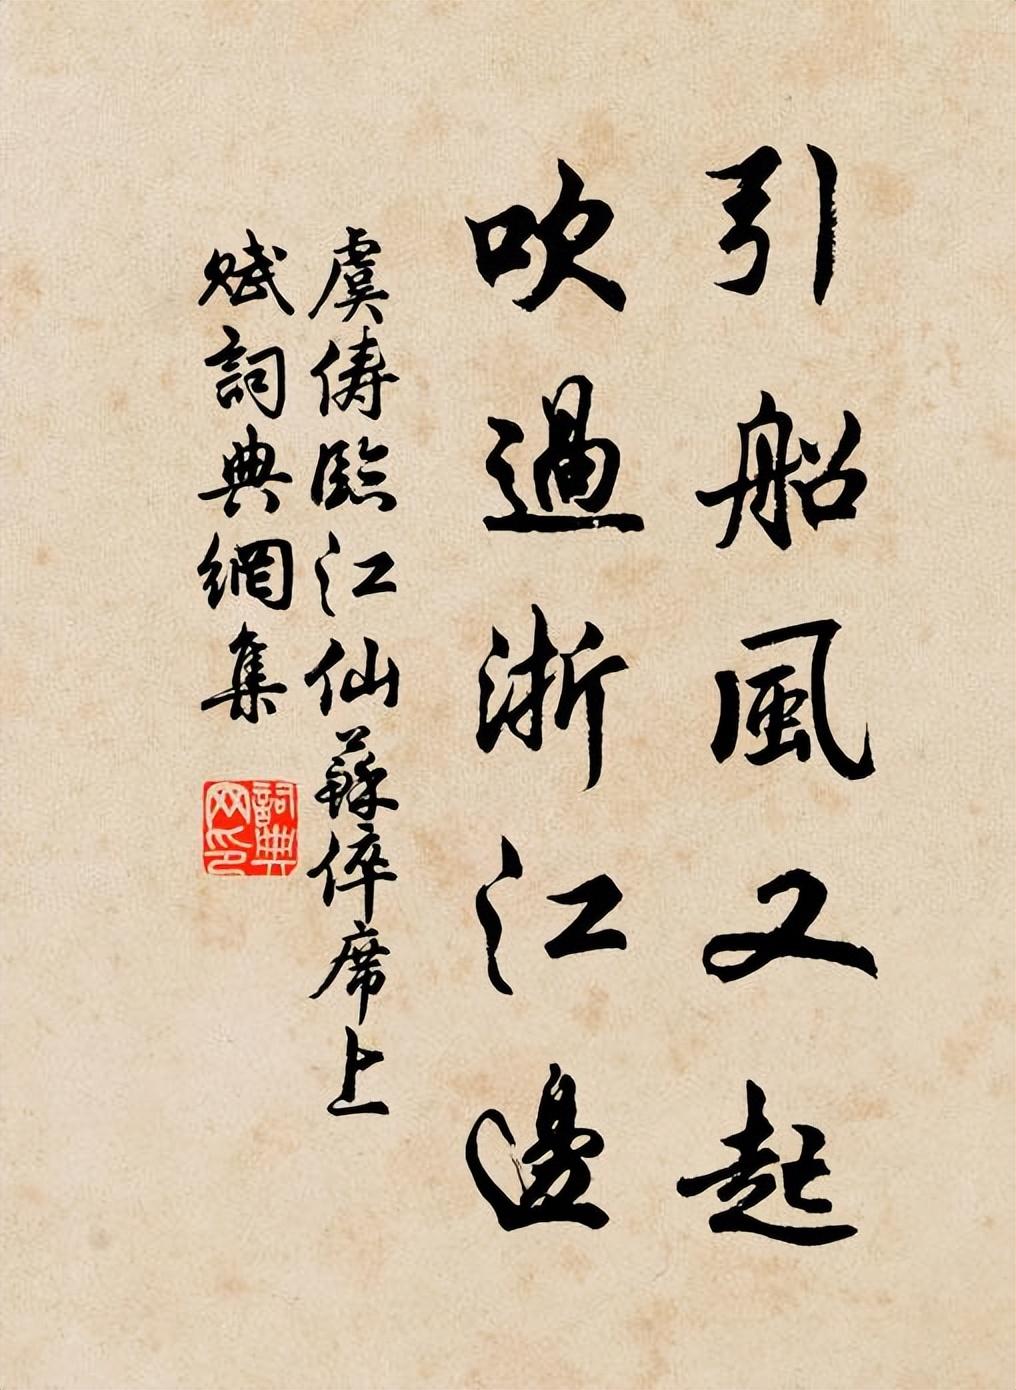 引船風又起
吹過浙江邊
虞儔臨江仙蘇倅席上
賦詞典網集
詞典网印